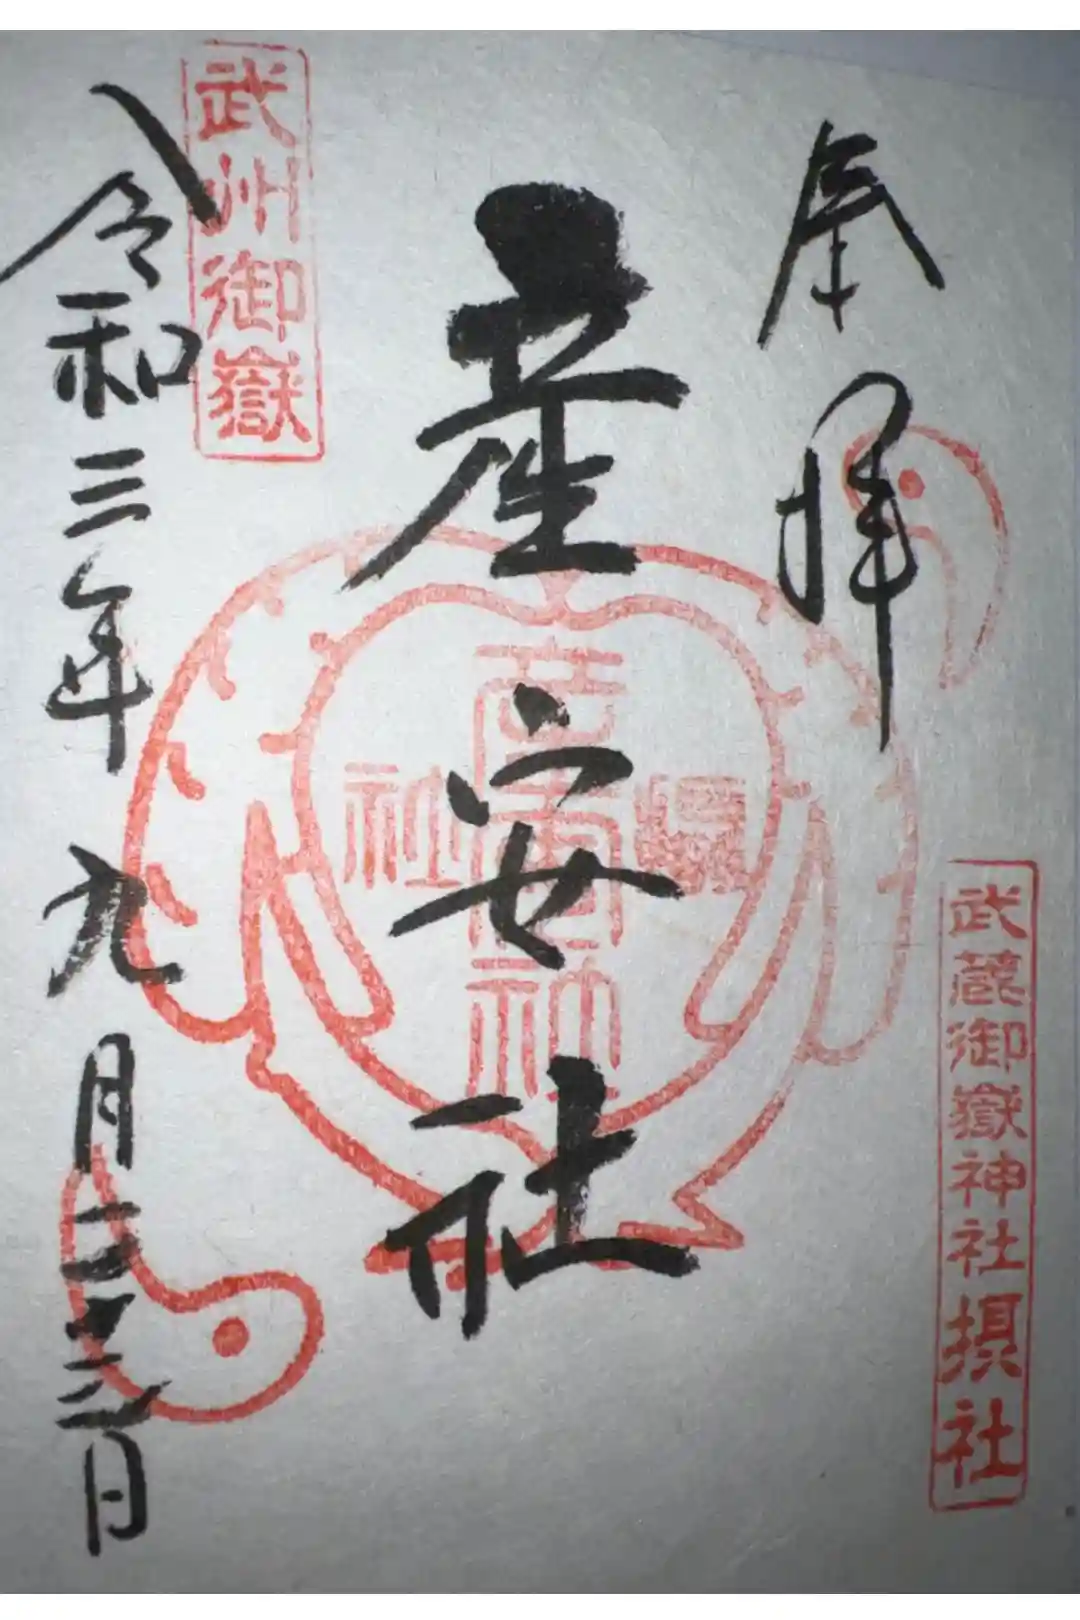 奉拝
武蔵御嶽神社摂社
産安社
武州御嶽
令和三年九月二十三日